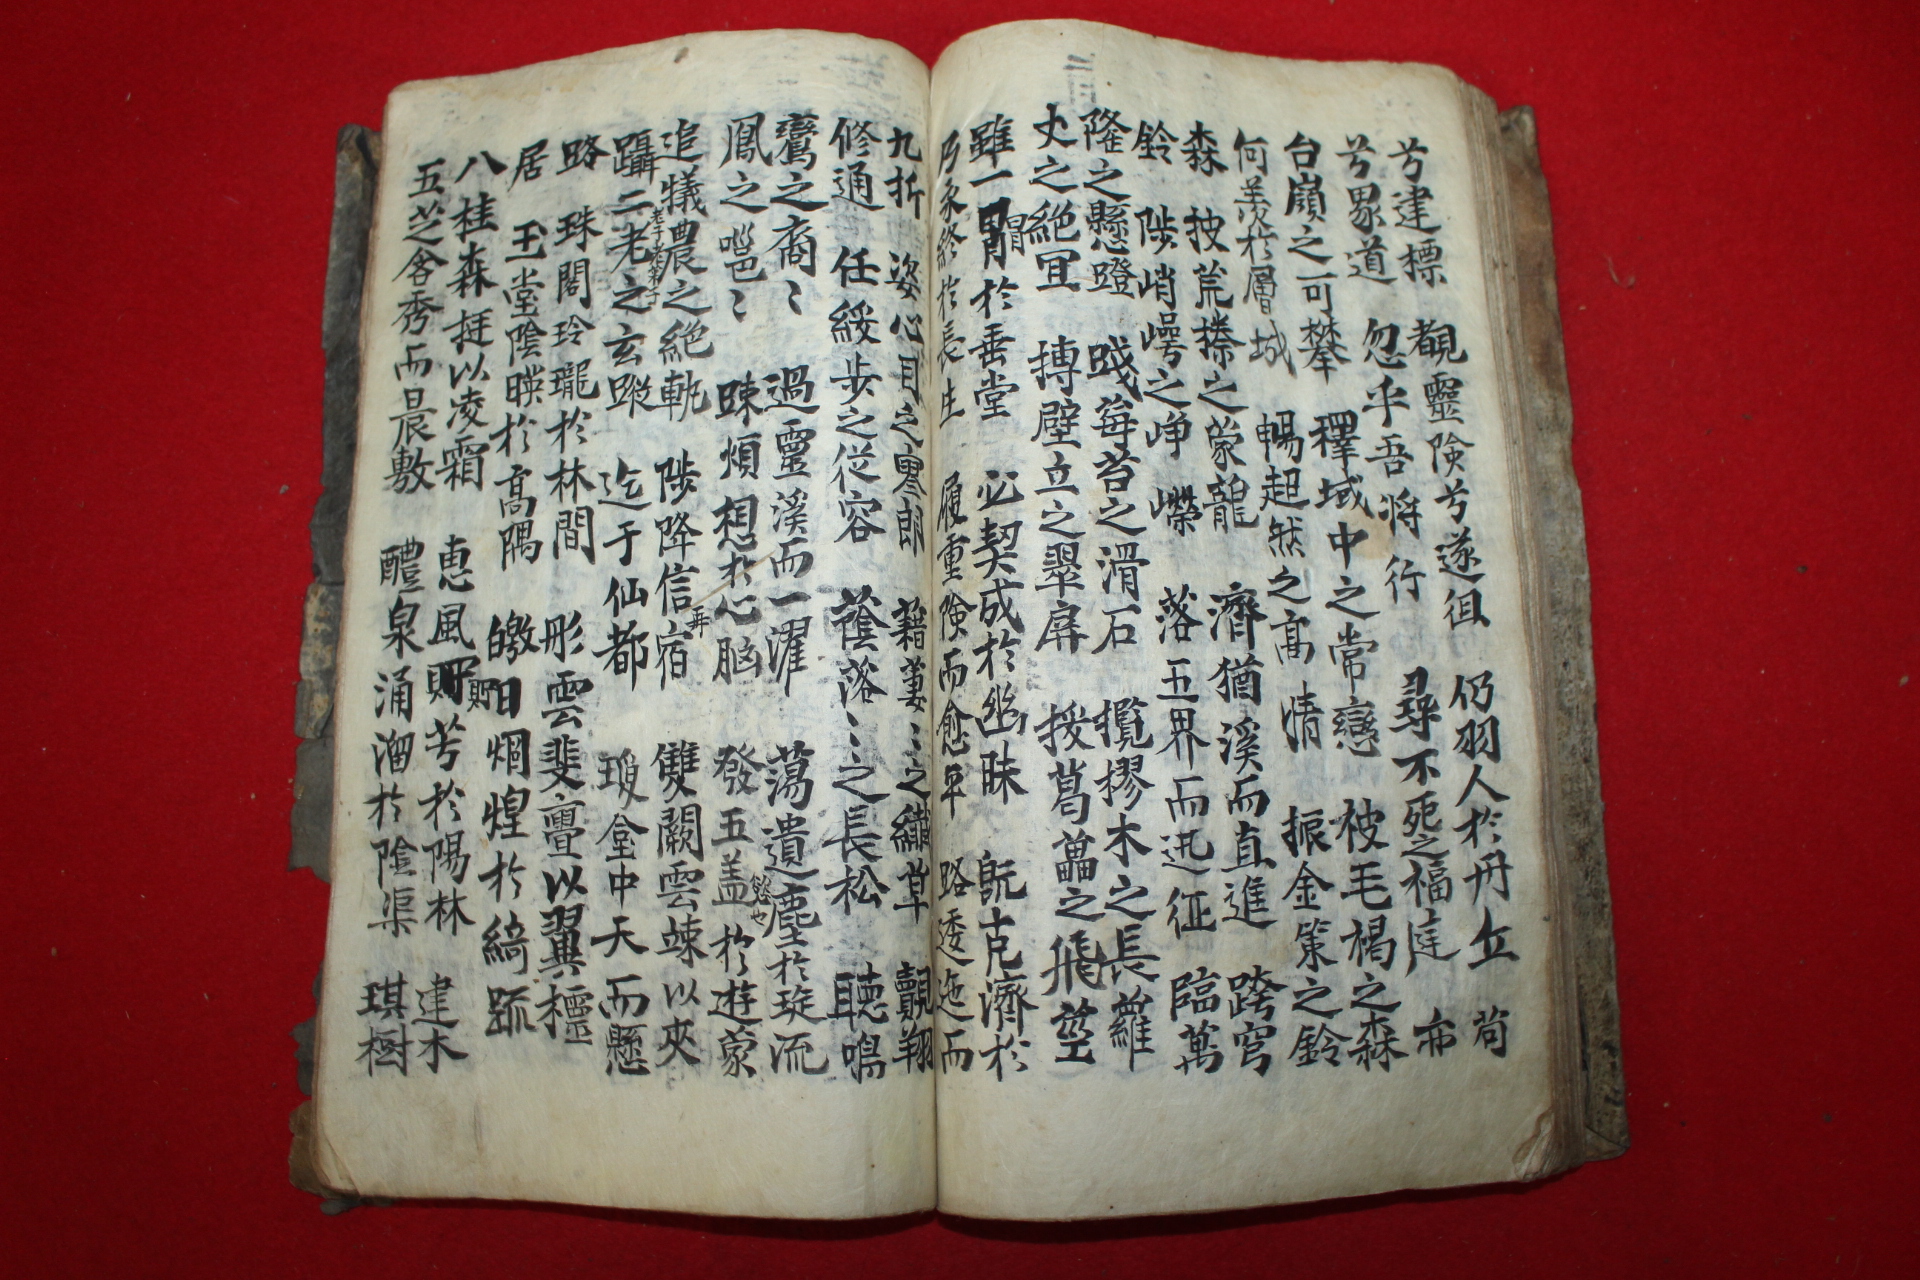 兮建標 覩靈険兮遂徂 仍羽人於丹丘 苟
兮界道 忽乎吾将行 尋不死之福庭 亦
台嶺之可攀 釋域中之常戀 被毛褐之森
何羨於層城 暢超然之高情 振金策之鈴
森 披荒榛之蒙蘢 濟猶溪而直進 跨穹
鈴 陟峭崿之崢嶸 落五界而迅征 臨萬
隆之懸磴 踐莓苔之滑石 攬樛木之長蘿
丈之絕冥 搏壁立之翠屏 援葛藟之飛莖
雖一冒於垂堂 必契成於幽昧 既克濟於
乃永終於長生 履重険而愈平 路逶迤而
九折 恣心目之寥朗 藉萋〻之纖草 覿翔
修通 任緩步之従容 蔭落〻之長松 聽鳴
鸞之裔〻 過靈溪而一濯 蕩遺塵於琁流
鳳之嗈〻 踈煩想於心胸 發五盖於遊蒙
追犧農之絕軌 陟降信宿 雙闕雲竦以夾
躡二老之玄蹤 迄于仙都 瓊台中天而懸
路 珠閣玲瓏於林間 彤雲斐亹以翼櫺
居 玉堂陰暎於高隅 皦日烱煌於綺疏
八桂森挺以凌霜 惠風貯芳於陽林 建木
五芝含秀而晨敷 醴泉涌溜於陰渠 琪樹